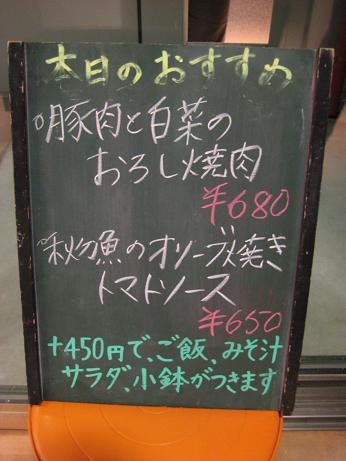 本日のおすすめ
○豚肉と白菜の
おろし焼肉
¥680
○秋刀魚のオリーブ焼き
トマトソース
¥650
+450円で、ご飯、みそ汁
サラダ、小鉢がつきます